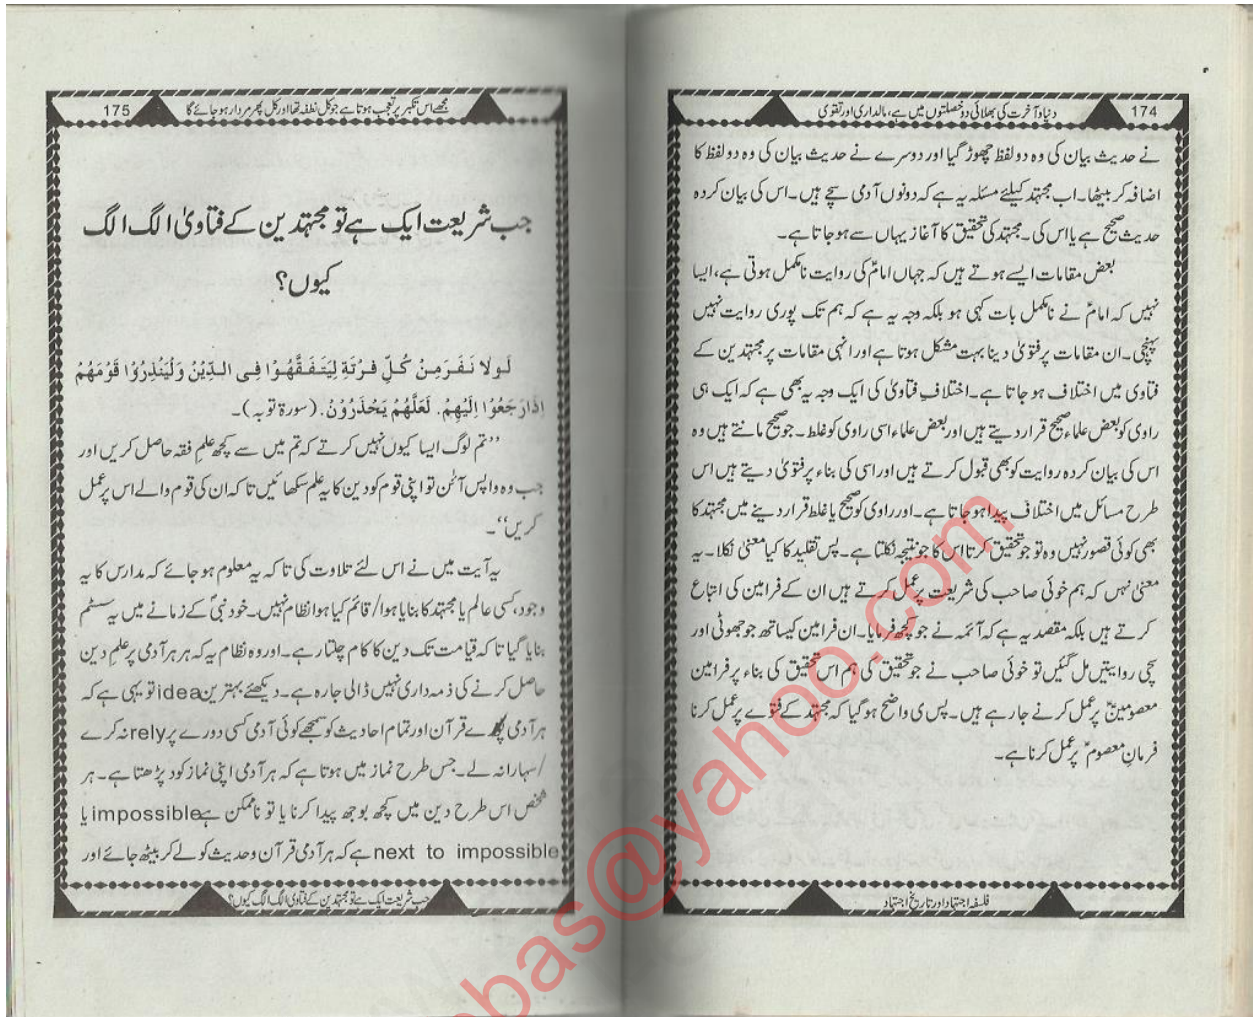 174
دنیا و آخرت کی بھلائی دو خصلتوں میں ہے، مالداری اور تقویٰ
نے حدیث بیان کی وہ دو لفظ چھوڑ گیا اور دوسرے نے حدیث بیان کی وہ دو لفظ کا
اضافہ کر بیٹھا۔ اب مجتہد کیلئے مسئلہ یہ ہے کہ دونوں آدمی سچے ہیں۔ اس کی بیان کردہ
حدیث صحیح ہے یا اس کی۔ مجتہد کی تحقیق کا آغاز یہاں سے ہو جاتا ہے۔
بعض مقامات ایسے ہوتے ہیں کہ جہاں امامؑ کی روایت نامکمل ہوتی ہے، ایسا
نہیں کہ امامؑ نے نامکمل بات کہی ہو بلکہ وجہ یہ ہے کہ ہم تک پوری روایت نہیں
پہنچی۔ ان مقامات پر فتویٰ دینا بہت مشکل ہوتا ہے اور انہی مقامات پر مجتہدین کے
فتاوی میں اختلاف ہو جاتا ہے۔ اختلافِ فتاویٰ کی ایک وجہ یہ بھی ہے کہ ایک ہی
راوی کو بعض علماء صحیح قرار دیتے ہیں اور بعض علماء اسی راوی کو غلط۔ جو صحیح مانتے ہیں وہ
اس کی بیان کردہ روایت کو بھی قبول کرتے ہیں اور اسی کی بناء پر فتویٰ دیتے ہیں اس
طرح مسائل میں اختلاف پیدا ہو جاتا ہے۔ اور راوی کو صحیح یا غلط قرار دینے میں مجتہد کا
بھی کوئی قصور نہیں وہ تو جو تحقیق کرتا اس کا جو نتیجہ نکلتا ہے۔ پس تقلید کا کیا معنیٰ نکلا۔ یہ
معنیٰ نہیں کہ ہم خوئی صاحب کی شریعت پر عمل کرتے ہیں ان کے فرامین کی اتباع
کرتے ہیں بلکہ مقصد یہ ہے کہ آئمہ نے جو کچھ فرمایا۔ ان فرامین کیساتھ جو جھوٹی اور
سچی روایتیں مل گئیں تو خوئی صاحب نے جو تحقیق کی ہم اس تحقیق کی بناء پر فرامین
معصومینؑ پر عمل کرنے جا رہے ہیں۔ پس ی واضح ہو گیا کہ مجتہد کے فتوے پر عمل کرنا
فرمانِ معصومؑ پر عمل کرنا ہے۔
فلسفہ اجتہاد اور تاریخ اجتہاد
175
مجھے اس تکبر پر تعجب ہوتا ہے جو کل نطفہ تھا اور کل پھر مردار ہو جائے گا
جب شریعت ایک ہے تو مجتہدین کے فتاویٰ الگ الگ
کیوں؟
لَولا نَفَرَ مِنْ کُلِّ فِرْتَةِ لِیَتَفَقَّهُوْا فِی الدِّیْنُ وَلْیُنْذِرُوْا قَوْمَهُمْ
اِذَا رَجَعُوْا اِلَیْهِمْ. لَعَلَّهُمْ یَحْذَرُوْنُ. (سورۃ توبہ)۔
”تم لوگ ایسا کیوں نہیں کرتے کہ تم میں سے کچھ علمِ فقہ حاصل کریں اور
جب وہ واپس آئن تو اپنی قوم کو دین کا یہ علم سکھائیں تا کہ ان کی قوم والے اس پر عمل
کریں“۔
یہ آیت میں نے اس لئے تلاوت کی تا کہ یہ معلوم ہو جائے کہ مدارس کا یہ
وجود، کسی عالم یا مجتہد کا بنایا ہوا/ قائم کیا ہوا نظام نہیں۔ خود نبیؐ کے زمانے میں یہ سسٹم
بنایا گیا تا کہ قیامت تک دین کا کام چلتا رہے۔ اور وہ نظام یہ کہ ہر ہر آدمی پر علمِ دین
حاصل کرنے کی ذمہ داری نہیں ڈالی جا رہی ہے۔ دیکھئے بہترین idea تو یہی ہے کہ
ہر آدمی پورے قرآن اور تمام احادیث کو سمجھے کوئی آدمی کسی دورے پر rely نہ کرے
/سہارا نہ لے۔ جس طرح نماز میں ہوتا ہے کہ ہر آدمی اپنی نماز کو د پڑھتا ہے۔ ہر
شخص اس طرح دین میں کچھ بوجھ پیدا کرنا یا تو ناممکن ہے impossible یا
next to impossible ہے کہ ہر آدمی قرآن و حدیث کو لے کر بیٹھ جائے اور
جب شریعت ایک ہے تو مجتہدین کے فتاویٰ الگ الگ کیوں؟
bas@yahoo.com